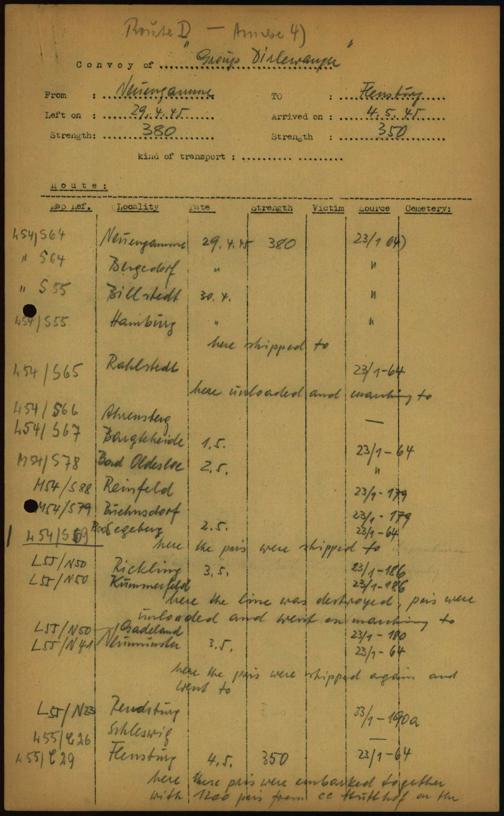 Route D — Annexe 4)
Convoy of "Group Dirlewanger"
From : Neuengamme TO : Flensburg
Left on : 29.4.45 Arrived on : 4.5.45
Strength: 380 Strength : 350
kind of transport :
Route:
Map Ref. Locality Date Strength Victim Source Cemetery:
L54/S64 Neuengamme 29.4.45 380 23/1 64)
" S64 Bergedorf " "
" S55 Billstedt 30.4. "
L54/S55 Hamburg " "
here shipped to
L54/S65 Rahlstedt 23/1-64
here unloaded and marching to
L54/S66 Ahrensberg —
L54/S67 Bargteheide 1.5. 23/1-64
M54/S78 Bad Oldesloe 2.5. "
M54/S88 Reinfeld 23/1-179
M54/S79 Buehnsdorf 23/1-179
L54/S69 Bad Segeberg 2.5. 23/1-64
here the pris were shipped to
L55/N50 Rickling 3.5. 23/1-186
L55/N50 Kummerfeld 23/1-186
here the line was destroyed, pris were
unloaded and went on marching to
L55/N50 Gadeland 23/1-180
L55/N41 Neumünster 3.5. 23/1-64
here the pris were shipped again and
went to
L55/N23 Rendsburg 33/1-190a
L55/C26 Schleswig —
L55/C29 Flensburg 4.5. 350 23/1-64
here these pris were embarked together
with 1200 pris from CC Stutthof on the